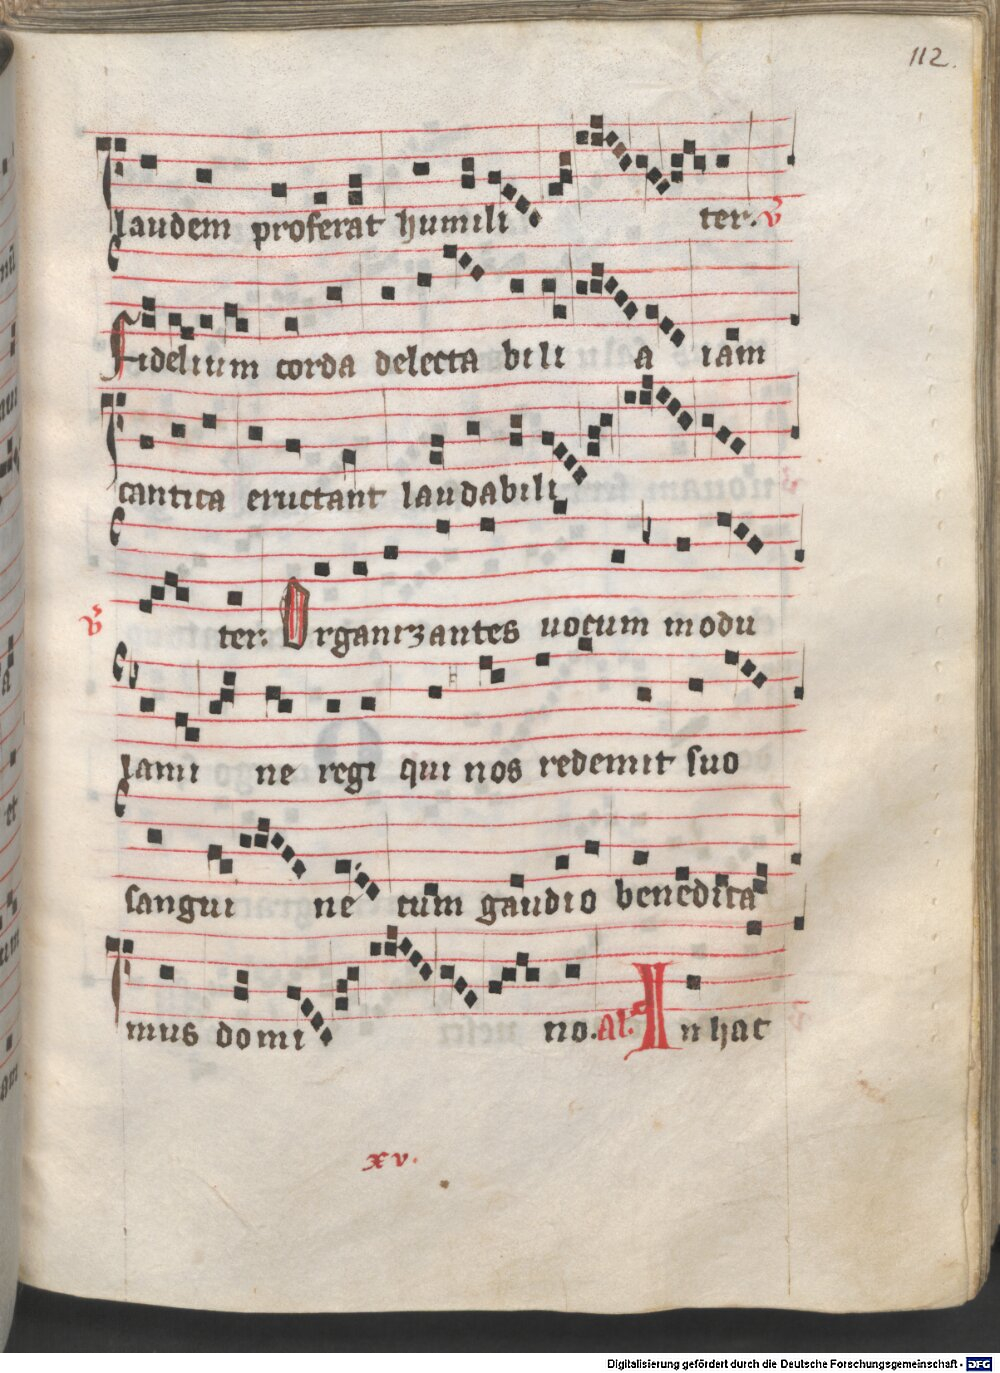 112.
laudem proferat humili ter. v̄
Fidelium corda delecta bili a iam
cantica eructant laudabili
v̄ ter. Organizantes uocum modu
lami ne regi qui nos redemit suo
sangui ne cum gaudio benedica
mus domi no. al. In hac
xv.
Digitalisierung gefördert durch die Deutsche Forschungsgemeinschaft - DFG